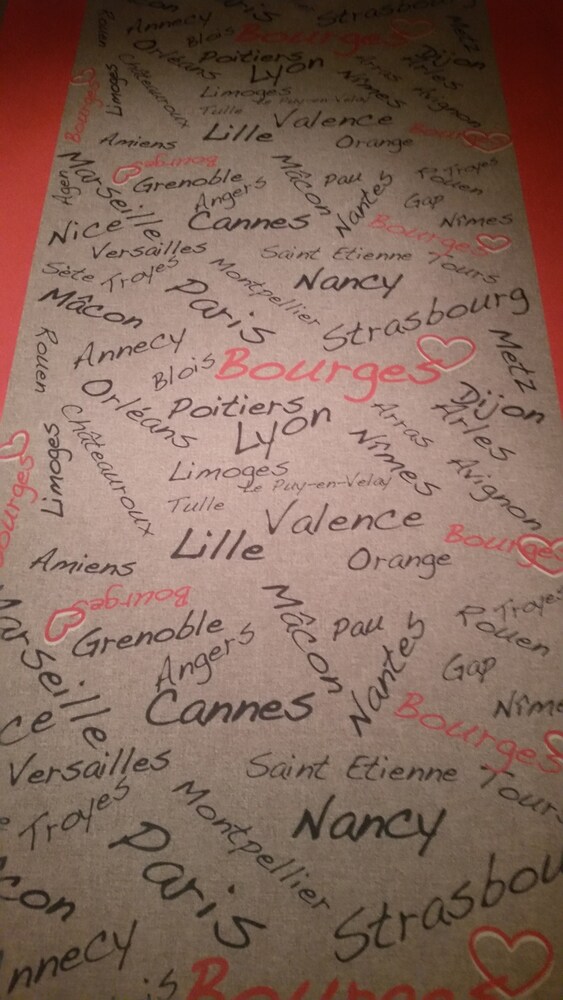 Paris
Strasbourg
Annecy
Metz
Rouen
Blois
Bourges
Orléans
Poitiers
Dijon
Arles
Lyon
Arras
Nîmes
Avignon
Châteauroux
Limoges
Limoges
Le Puy-en-Velay
Tulle
Bourges
Valence
Lille
Orange
Bourges
Amiens
Bourges
Marseille
Grenoble
Mâcon
Pau
Troyes
Rouen
Agen
Angers
Nantes
Gap
Nîmes
Nice
Cannes
Bourges
Versailles
Saint Etienne
Tours
Sète
Troyes
Montpellier
Nancy
Mâcon
Paris
Strasbourg
Annecy
Metz
Rouen
Blois
Bourges
Orléans
Poitiers
Dijon
Arles
Lyon
Arras
Nîmes
Avignon
Châteauroux
Limoges
Limoges
Le Puy-en-Velay
Tulle
Bourges
Valence
Lille
Orange
Bourges
Amiens
Bourges
Marseille
Grenoble
Mâcon
Pau
Troyes
Rouen
Angers
Nantes
Gap
Nîme
Cannes
Bourges
ce
Versailles
Saint Etienne
Tours
Troyes
Montpellier
Nancy
con
Paris
Strasbou
nnecy
is
Bourges